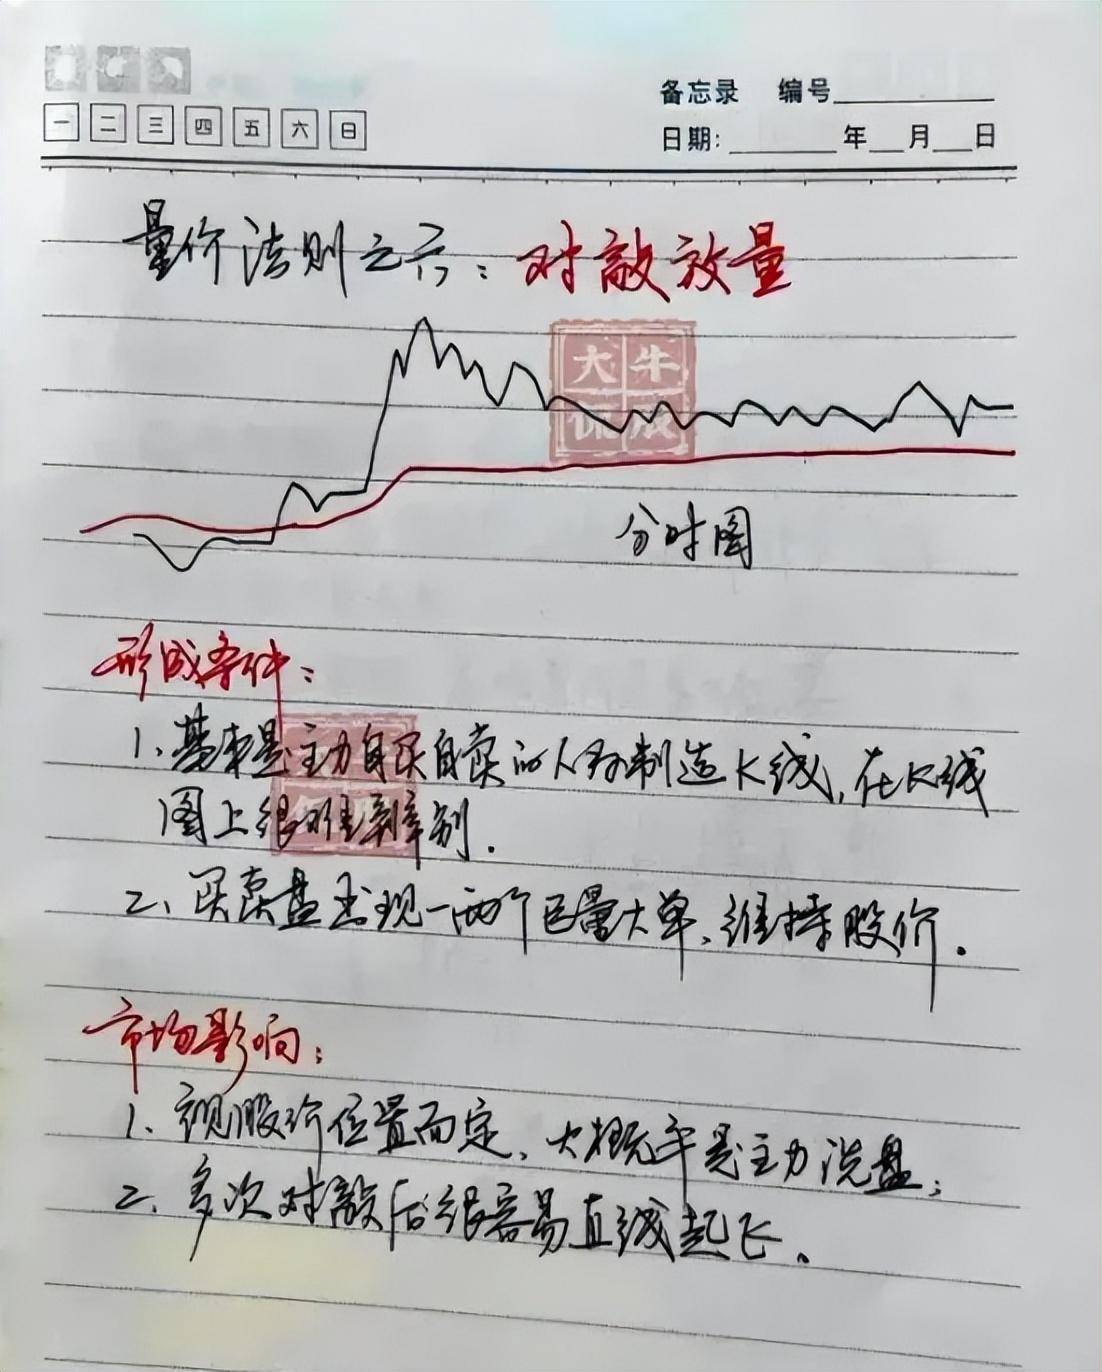 备忘录 编号
一 二 三 四 五 六 日
日期: 年 月 日
量价法则之六：对敲放量
大牛
分时图
形成条件：
1、基本是主力自买自卖的人为制造K线，在K线
图上很难辨别．
2、买卖盘出现一两个巨量大单、维持股价．
市场影响：
1、视股价位置而定，大概率是主力洗盘；
2、多次对敲后很容易直线起飞。